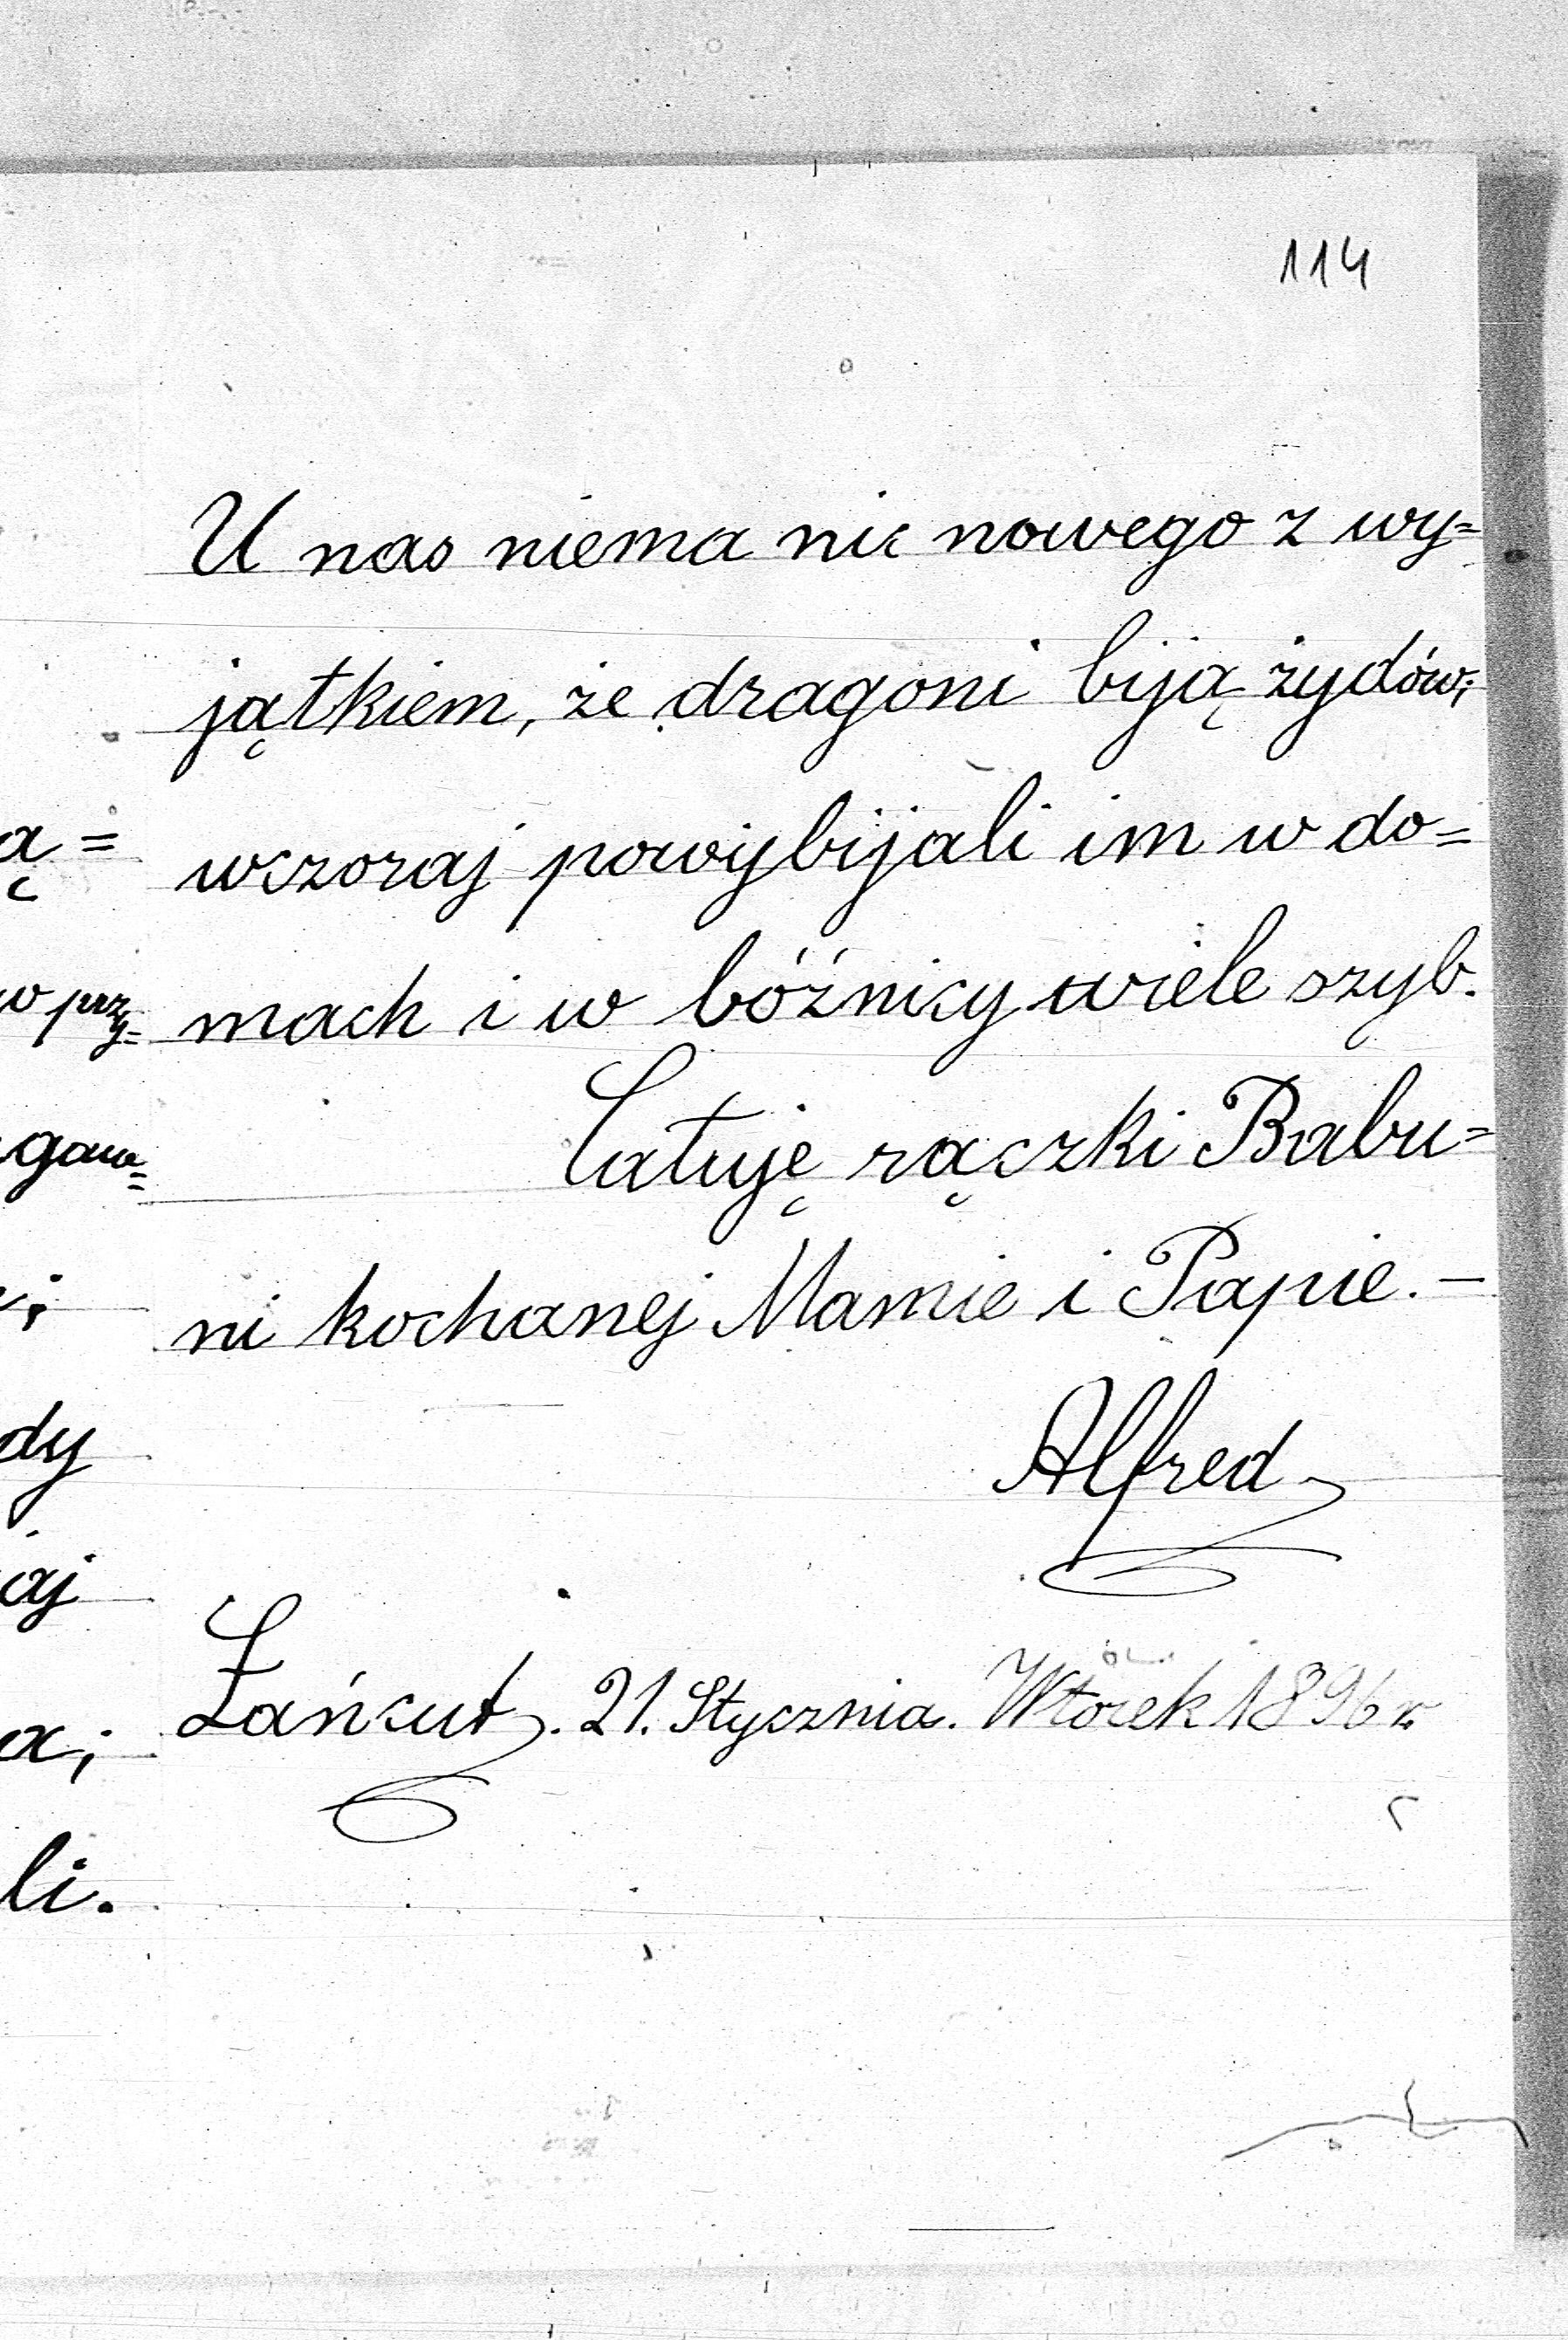 114
U nas niema nic nowego z wy=
jątkiem, że dragoni biją żydów;
wczoraj powybijali im w do=
mach i w bóźnicy wiele szyb.
Całuję rączki Babu=
ni kochanej Mamie i Papie. —
Alfred
Łańcut. 21. Stycznia. Wtorek 1896 r.
ą=
w przy=
gaw=
dy
aj
a;
li.